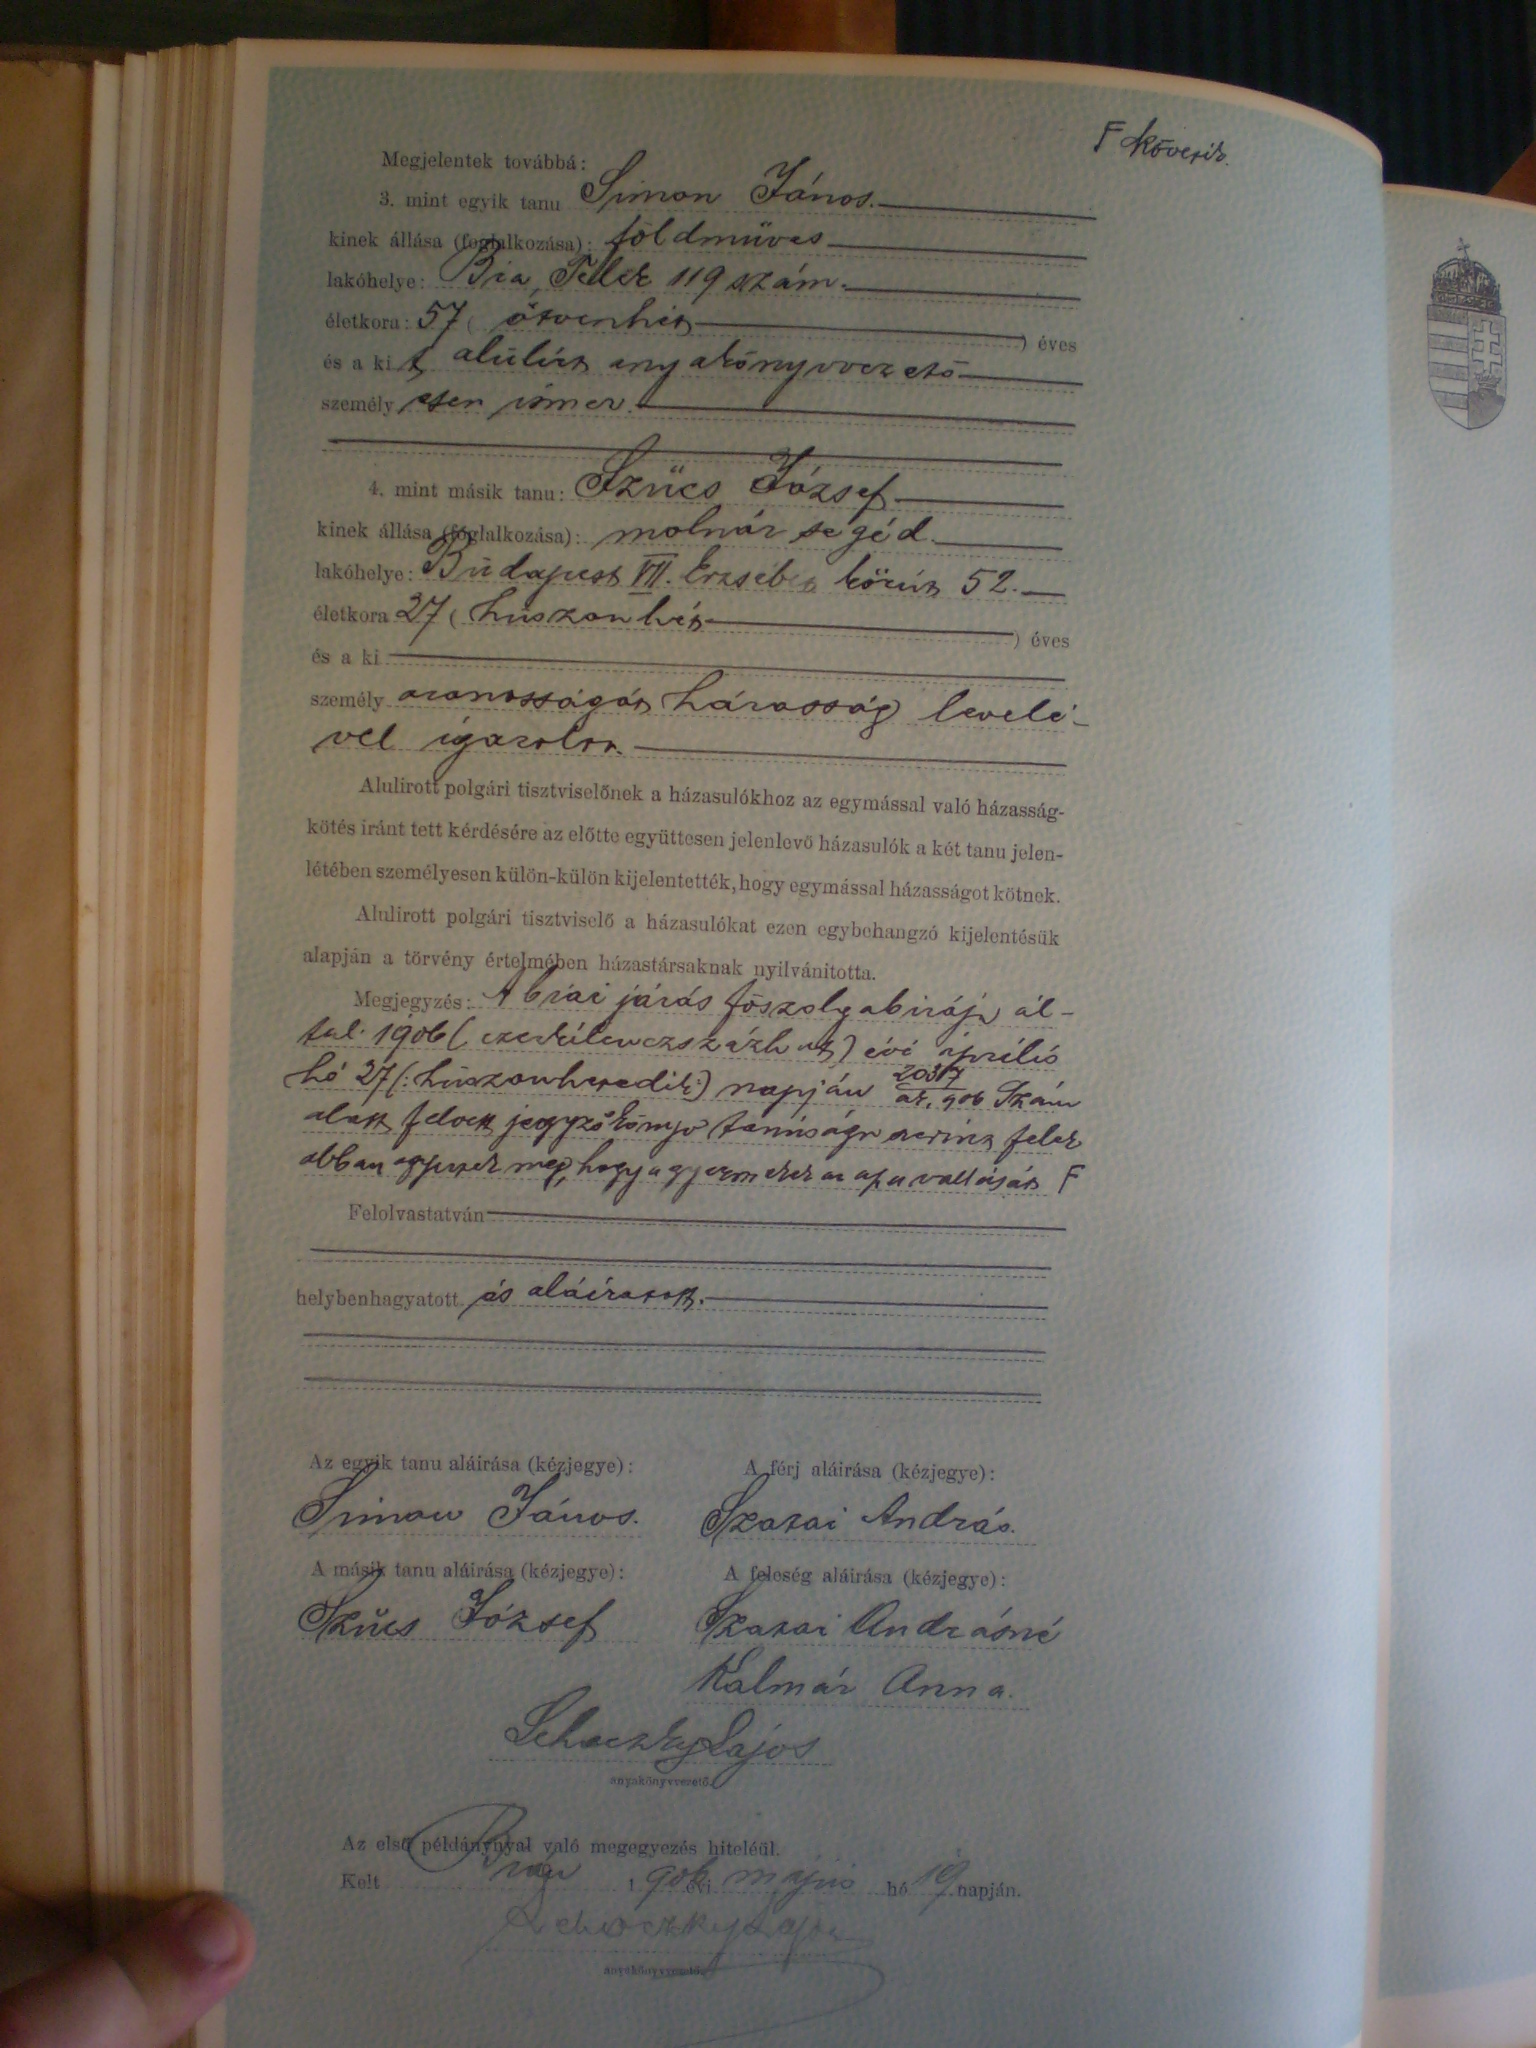 F követik.
Megjelentek továbbá:
3. mint egyik tanu Simon János.
kinek állása (foglalkozása): földmüves
lakóhelye: Bia, Telek 119 szám.
életkora: 57 ( ötvenhét ) éves
és a ki t alulirt anyakönyvvezető
személy esen ismer.
4. mint másik tanu: Szücs József
kinek állása (foglalkozása): molnár segéd.
lakóhelye: Budapest VII. Erzsébet körút 52.
életkora 27 ( huszonhét ) éves
és a ki
személy azonosságát házasság levelé-
vel igazolta.
Alulirott polgári tisztviselőnek a házasulókhoz az egymással való házasság-
kötés iránt tett kérdésére az előtte együttesen jelenlevő házasulók a két tanu jelen-
létében személyesen külön-külön kijelentették, hogy egymással házasságot kötnek.
Alulirott polgári tisztviselő a házasulókat ezen egybehangzó kijelentésük
alapján a törvény értelmében házastársaknak nyilvánitotta.
Megjegyzés: A biai járás főszolgabirája ál-
tal 1906 (ezerkilenczszázhat) évi április
hó 27 (: huszonhetedik :) napján 2037/ak. 906 szám
alatt felvett jegyzőkönyv tanúsága szerint felek
abban egyeztek meg, hogy a gyermekek az apa vallását F
Felolvastatván
helybenhagyatott és aláiratott.
Az egyik tanu aláirása (kézjegye): A férj aláirása (kézjegye):
Simon János. Szatai András.
A másik tanu aláirása (kézjegye): A feleség aláirása (kézjegye):
Szücs József Szatai Andrásné
Kalmár Anna.
Schoczky Lajos
anyakönyvvezető.
Az első példánynyal való megegyezés hiteléül.
Kelt Bián 1906 évi május hó 19 napján.
Schoczky Lajos
anyakönyvvezető.